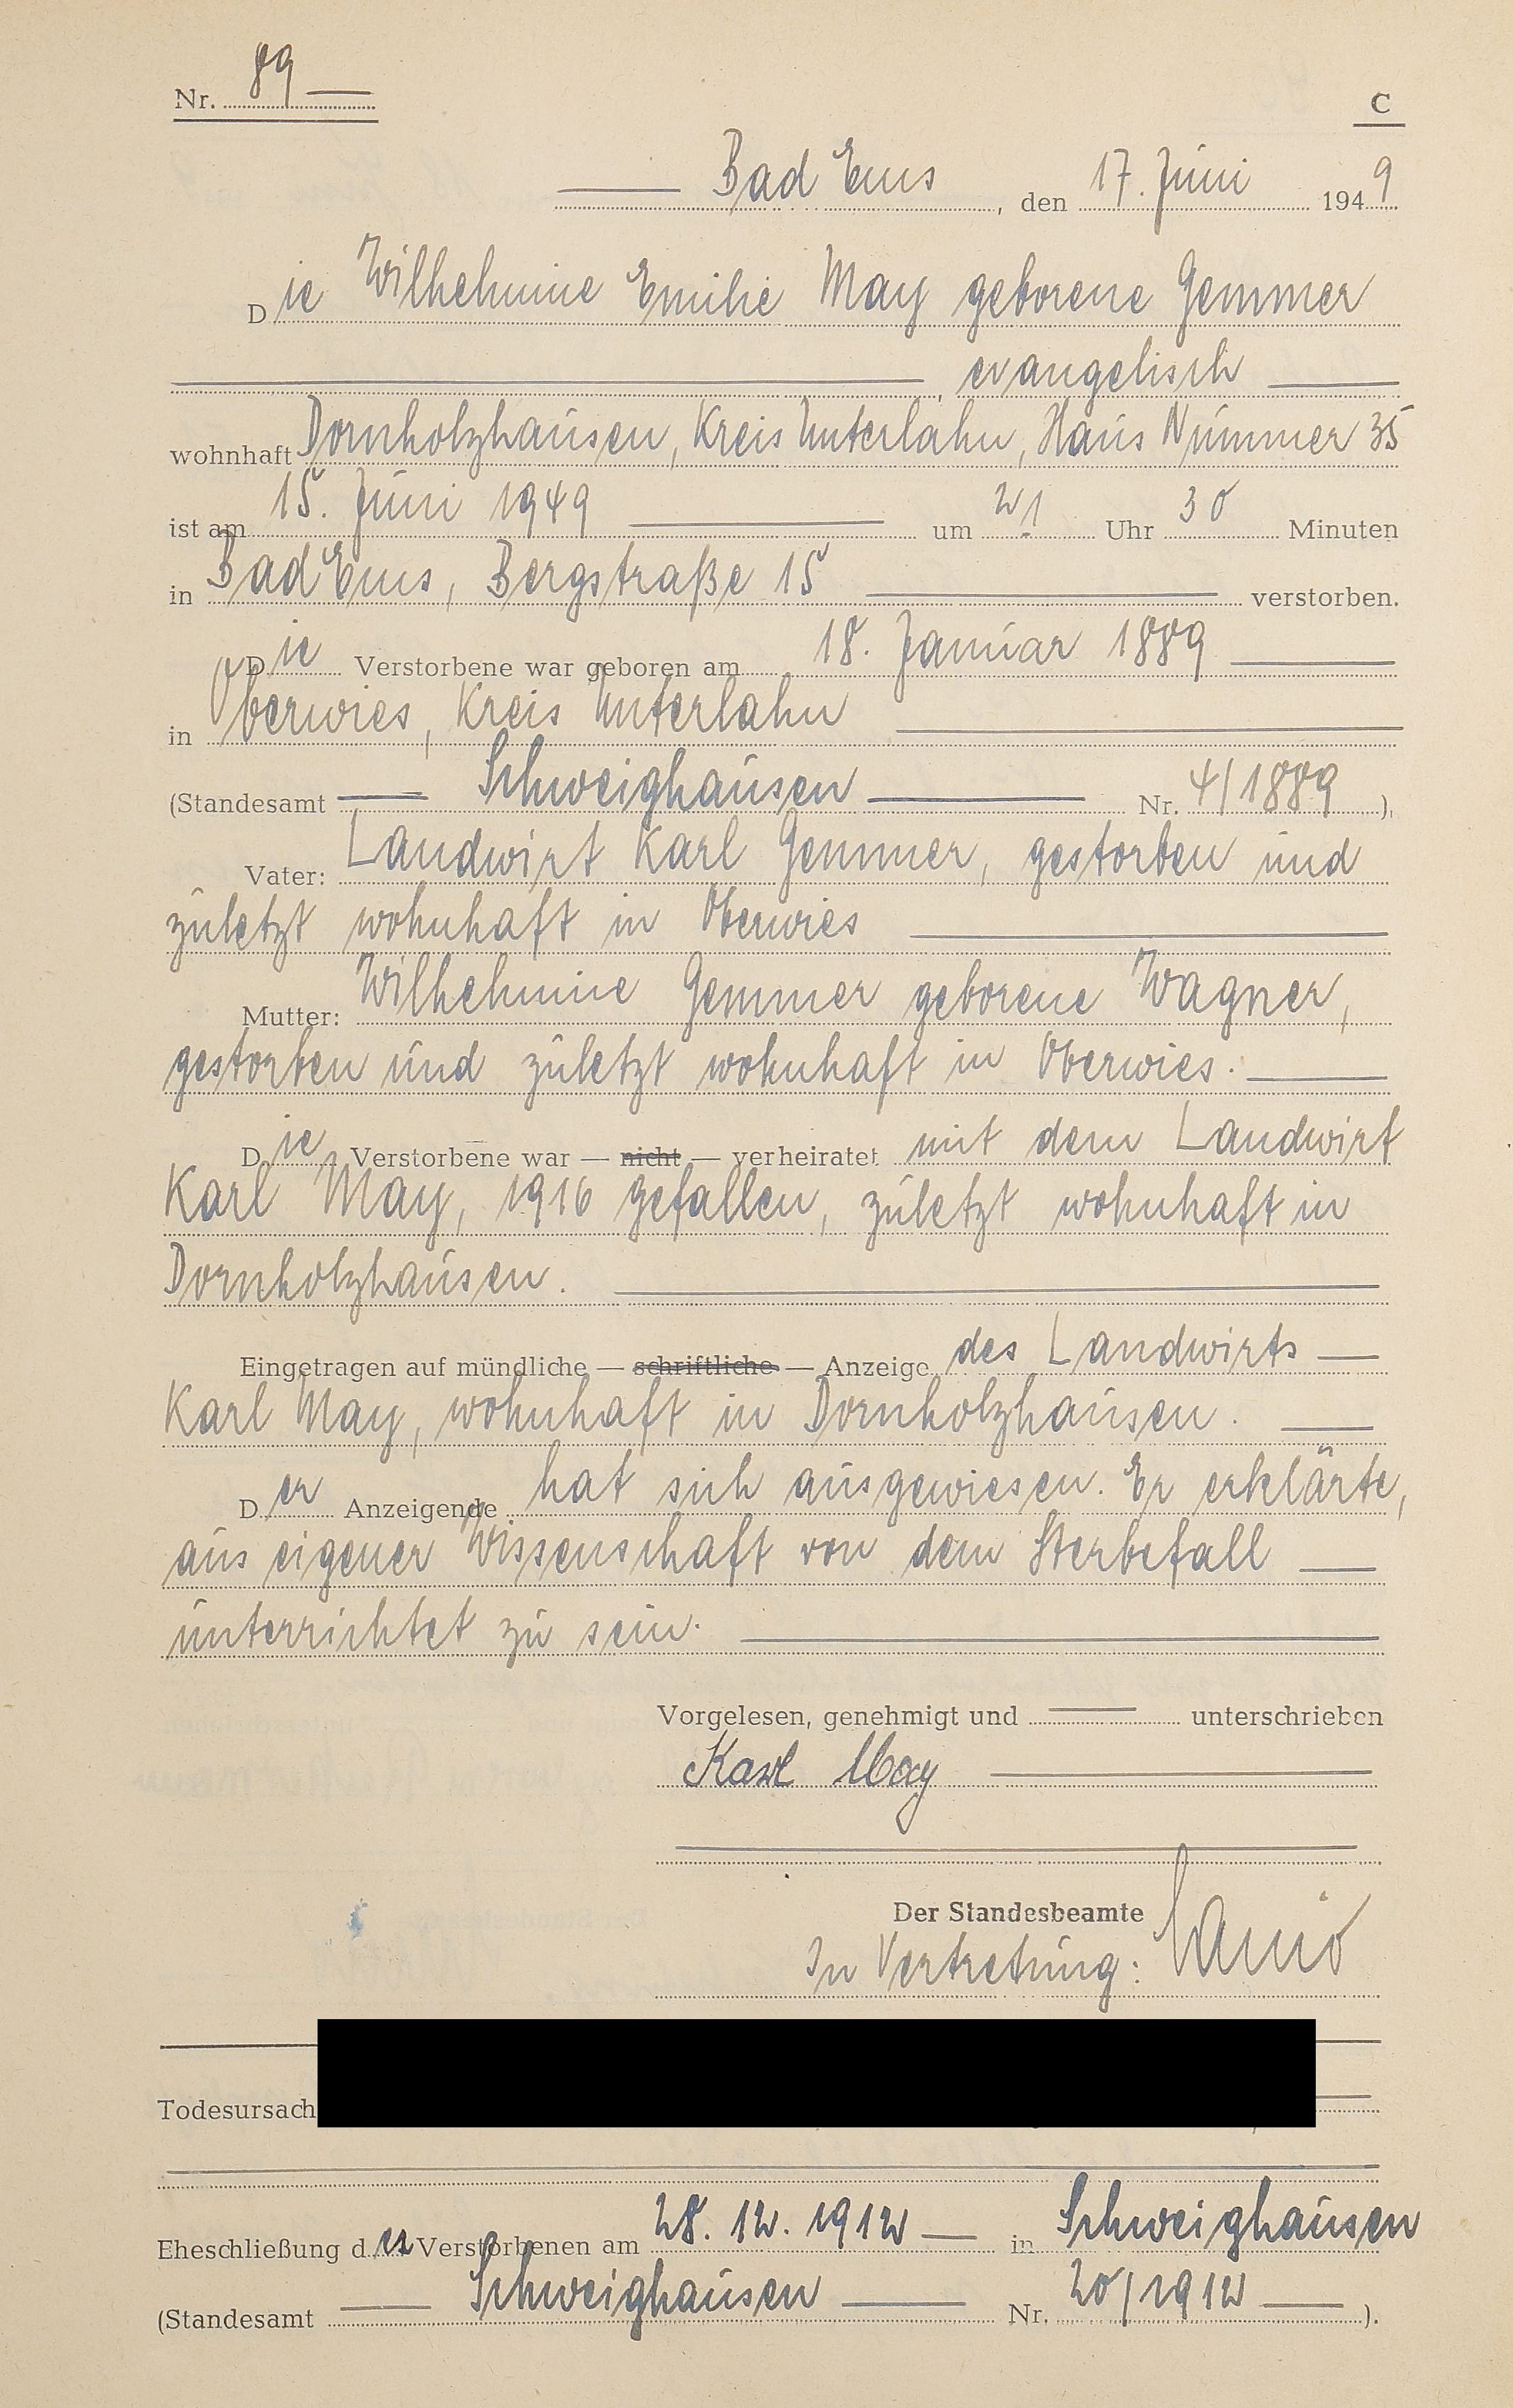 Nr. 89
C
Bad Ems, den 17. Juni 1949
Die Wilhelmine Emilie May geborene Gemmer
, evangelisch
wohnhaft Dornholzhausen, Kreis Unterlahn, Haus Nummer 35
ist am 15. Juni 1949 um 21 Uhr 30 Minuten
in Bad Ems, Bergstraße 15 verstorben.
Die Verstorbene war geboren am 18. Januar 1889
in Oberwies, Kreis Unterlahn
(Standesamt Schweighausen Nr. 4/1889),
Vater: Landwirt Karl Gemmer, gestorben und
zuletzt wohnhaft in Oberwies
Mutter: Wilhelmine Gemmer geborene Wagner,
gestorben und zuletzt wohnhaft in Oberwies.
Die Verstorbene war — nicht — verheiratet mit dem Landwirt
Karl May, 1916 gefallen, zuletzt wohnhaft in
Dornholzhausen.
Eingetragen auf mündliche — schriftliche — Anzeige des Landwirts
Karl May, wohnhaft in Dornholzhausen.
Der Anzeigende hat sich ausgewiesen. Er erklärte,
aus eigener Wissenschaft von dem Sterbefall
unterrichtet zu sein.
Vorgelesen, genehmigt und unterschrieben
Karl May
Der Standesbeamte
In Vertretung:
Todesursach
Eheschließung der Verstorbenen am 28. 12. 1912 in Schweighausen
(Standesamt Schweighausen Nr. 20/1912).